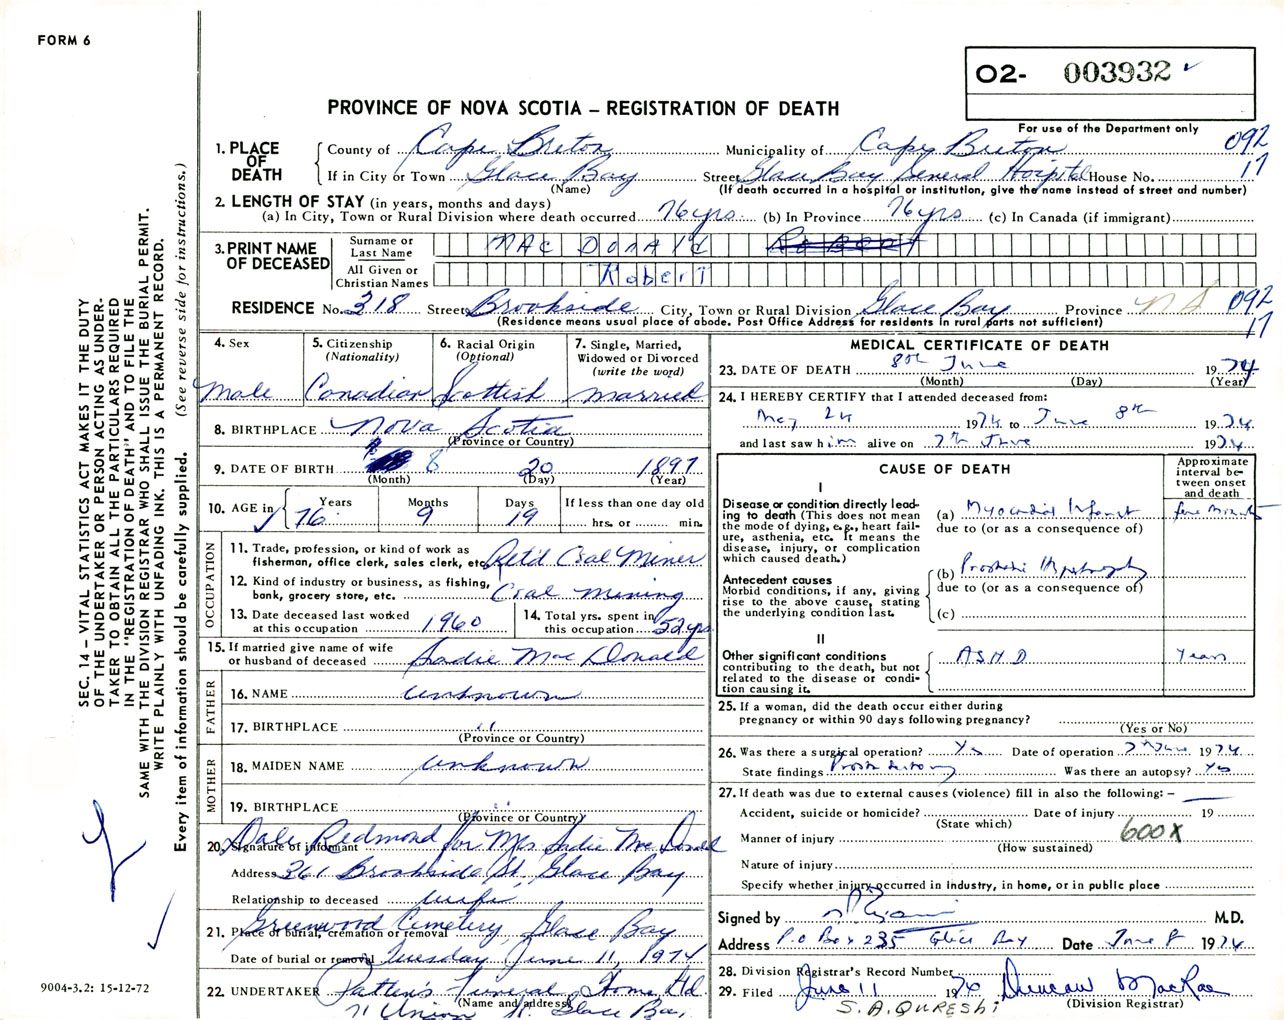 FORM 6
O2- 003932
PROVINCE OF NOVA SCOTIA – REGISTRATION OF DEATH
For use of the Department only
092
17
1. PLACE OF DEATH
County of Cape Breton Municipality of Cape Breton
If in City or Town Glace Bay Street Glace Bay General Hospital House No.
(Name) (If death occurred in a hospital or institution, give the name instead of street and number)
2. LENGTH OF STAY (in years, months and days)
(a) In City, Town or Rural Division where death occurred 76 yrs (b) In Province 76 yrs (c) In Canada (if immigrant)
3. PRINT NAME OF DECEASED
Surname or Last Name MAC DONALD Robert
All Given or Christian Names Robert
RESIDENCE No. 318 Street Brookside City, Town or Rural Division Glace Bay Province NS 092
(Residence means usual place of abode. Post Office Address for residents in rural parts not sufficient) 17
4. Sex Male
5. Citizenship (Nationality) Canadian
6. Racial Origin (Optional) Scottish
7. Single, Married, Widowed or Divorced (write the word) married
8. BIRTHPLACE Nova Scotia
(Province or Country)
9. DATE OF BIRTH 8 20 1897
(Month) (Day) (Year)
10. AGE in Years 76 Months 9 Days 19 If less than one day old hrs. or min.
OCCUPATION
11. Trade, profession, or kind of work as fisherman, office clerk, sales clerk, etc. Ret'd Coal Miner
12. Kind of industry or business, as fishing, bank, grocery store, etc. Coal Mining
13. Date deceased last worked at this occupation 1960
14. Total yrs. spent in this occupation 52 yrs
15. If married give name of wife or husband of deceased Sadie Mac Donald
FATHER
16. NAME unknown
17. BIRTHPLACE "
(Province or Country)
MOTHER
18. MAIDEN NAME unknown
19. BIRTHPLACE "
(Province or Country)
20. Signature of informant Dale Redmond for Mrs Sadie Mac Donald
Address 361 Brookside St. Glace Bay
Relationship to deceased wife
21. Place of burial, cremation or removal Greenwood Cemetery, Glace Bay
Date of burial or removal Tuesday June 11, 1974
22. UNDERTAKER Patten's Funeral Home Ltd
(Name and address)
71 Union St. Glace Bay
MEDICAL CERTIFICATE OF DEATH
23. DATE OF DEATH 8th June 1974
(Month) (Day) (Year)
24. I HEREBY CERTIFY that I attended deceased from:
May 24 1974 to June 8th 1974
and last saw him alive on 7th June 1974
CAUSE OF DEATH
Approximate interval between onset and death
I
Disease or condition directly leading to death (This does not mean the mode of dying, e.g., heart failure, asthenia, etc. It means the disease, injury, or complication which caused death.)
(a) Myocardial Infarct
due to (or as a consequence of)
Antecedent causes
Morbid conditions, if any, giving rise to the above cause, stating the underlying condition last.
(b) Prostatic Hypertrophy
due to (or as a consequence of)
(c)
II
Other significant conditions contributing to the death, but not related to the disease or condition causing it.
ASHD Years
25. If a woman, did the death occur either during pregnancy or within 90 days following pregnancy?
(Yes or No)
26. Was there a surgical operation? Yes Date of operation 7th June 1974
State findings Was there an autopsy? Yes
27. If death was due to external causes (violence) fill in also the following: –
Accident, suicide or homicide? Date of injury 19
(State which)
Manner of injury 600X
(How sustained)
Nature of injury
Specify whether injury occurred in industry, in home, or in public place
Signed by M.D.
Address P.O Box 235 Glace Bay Date June 8 1974
28. Division Registrar's Record Number
29. Filed June 11 1974 Duncan MacRae
(Division Registrar)
S.A. QURESHI
SEC. 14 – VITAL STATISTICS ACT MAKES IT THE DUTY
OF THE UNDERTAKER OR PERSON ACTING AS UNDER-
TAKER TO OBTAIN ALL THE PARTICULARS REQUIRED
IN THE "REGISTRATION OF DEATH" AND TO FILE THE
SAME WITH THE DIVISION REGISTRAR WHO SHALL ISSUE THE BURIAL PERMIT.
WRITE PLAINLY WITH UNFADING INK. THIS IS A PERMANENT RECORD.
Every item of information should be carefully supplied. (See reverse side for instructions.)
9004-3.2: 15-12-72